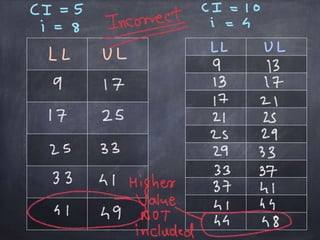 CI = 5
i = 8
Incorrect
CI = 10
i = 4
LL UL
9 17
17 25
25 33
33 41
41 49
LL UL
9 13
13 17
17 21
21 25
25 29
29 33
33 37
37 41
41 44
44 48
Higher
Value
NOT
included